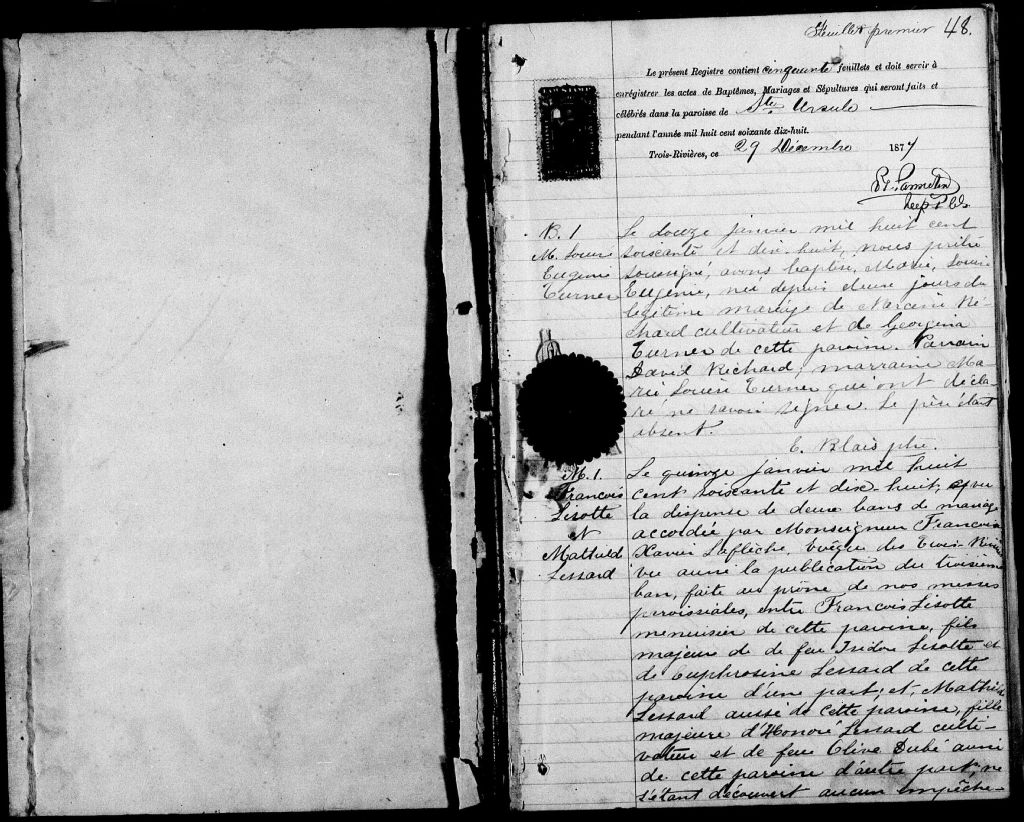 Feuillet premier 48.
Le présent Registre contient cinquante feuillets et doit servir à
enrégistrer les actes de Baptêmes, Mariages et Sépultures qui seront faits et
célébrés dans la paroisse de Ste Ursule
pendant l'année mil huit cent soixante dix-huit.
Trois-Rivières, ce 29 Décembre 1877
B. 1
M. Louise
Eugenie
Turner
Le douze janvier mil huit cent
soiscante et dix-huit, nous prêtre
soussigné, avons baptisé, Marie, Louise
Eugenie, née depuis deux jours du
légitime mariage de Narcisse Ri-
chard cultivateur et de Georgina
Turner de cette paroisse. Parrain
David Richard, marraine Ma-
rie Louise Turner qui ont décla-
ré ne savoir signer. Le père étant
absent.
E. Blais ptre.
M. 1.
Francois
Lisotte
et
Mathilde
Lessard
Le quinze janvier mil huit
cent soiscante et dix-huit, vu
la dispense de deux bans de mariage
accordée par Monseigneur Francois
Xavier Laflèche, Evêque des Trois-Rivières
vu aussi la publication du troisième
ban, faite au prône de nos messes
paroissiales, entre Francois Lisotte
menuisier de cette paroisse, fils
majeur de de feu Isidore Lisotte et
de Euphrosine Lessard de cette
paroisse d'une part; et, Mathilde
Lessard aussi de cette paroisse, fille
majeure d'Honoré Lessard culti-
vateur et de feu Olive Dubé aussi
de cette paroisse d'autre part; ne
s'étant découvert aucun empêche-